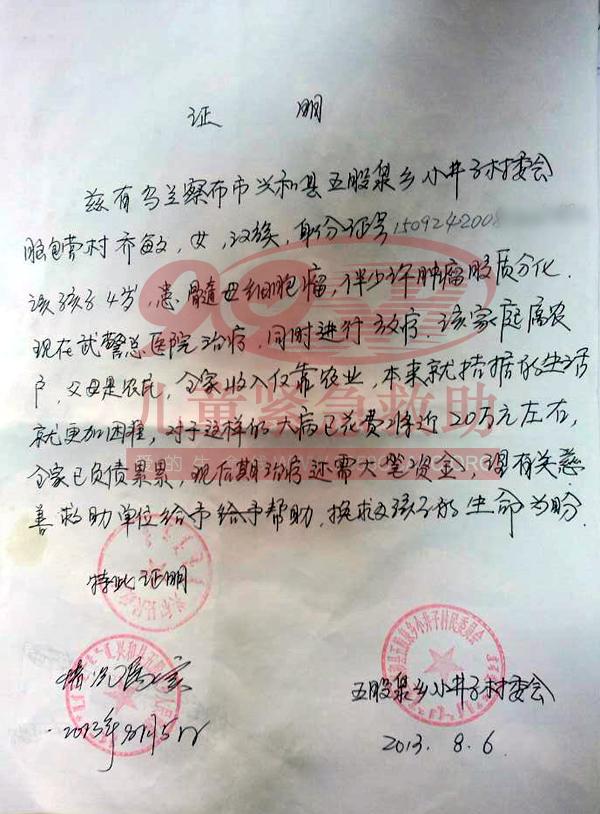 证 明
兹有乌兰察布市兴和县五股泉乡小井子村委会
村乔敏，女，汉族，身份证号1509242008
该孩子4岁，患髓母细胞瘤，伴少许肿瘤胶质分化.
现在武警总医院治疗，同时进行放疗.该家庭属农
户，父母是农民，全家收入仅靠农业，本来就拮据的生活
就更加困难，对于这样的大病已花费将近20万元左右，
全家已负债累累，现后期治疗还需大笔资金，望有关慈
善救助单位给予给予帮助.挽救孩子的生命为盼.
特此证明
情况属实
2013年8月5日
五股泉乡小井子村委会
2013. 8. 6.
儿童紧急救助
五股泉乡小井子村民委员会